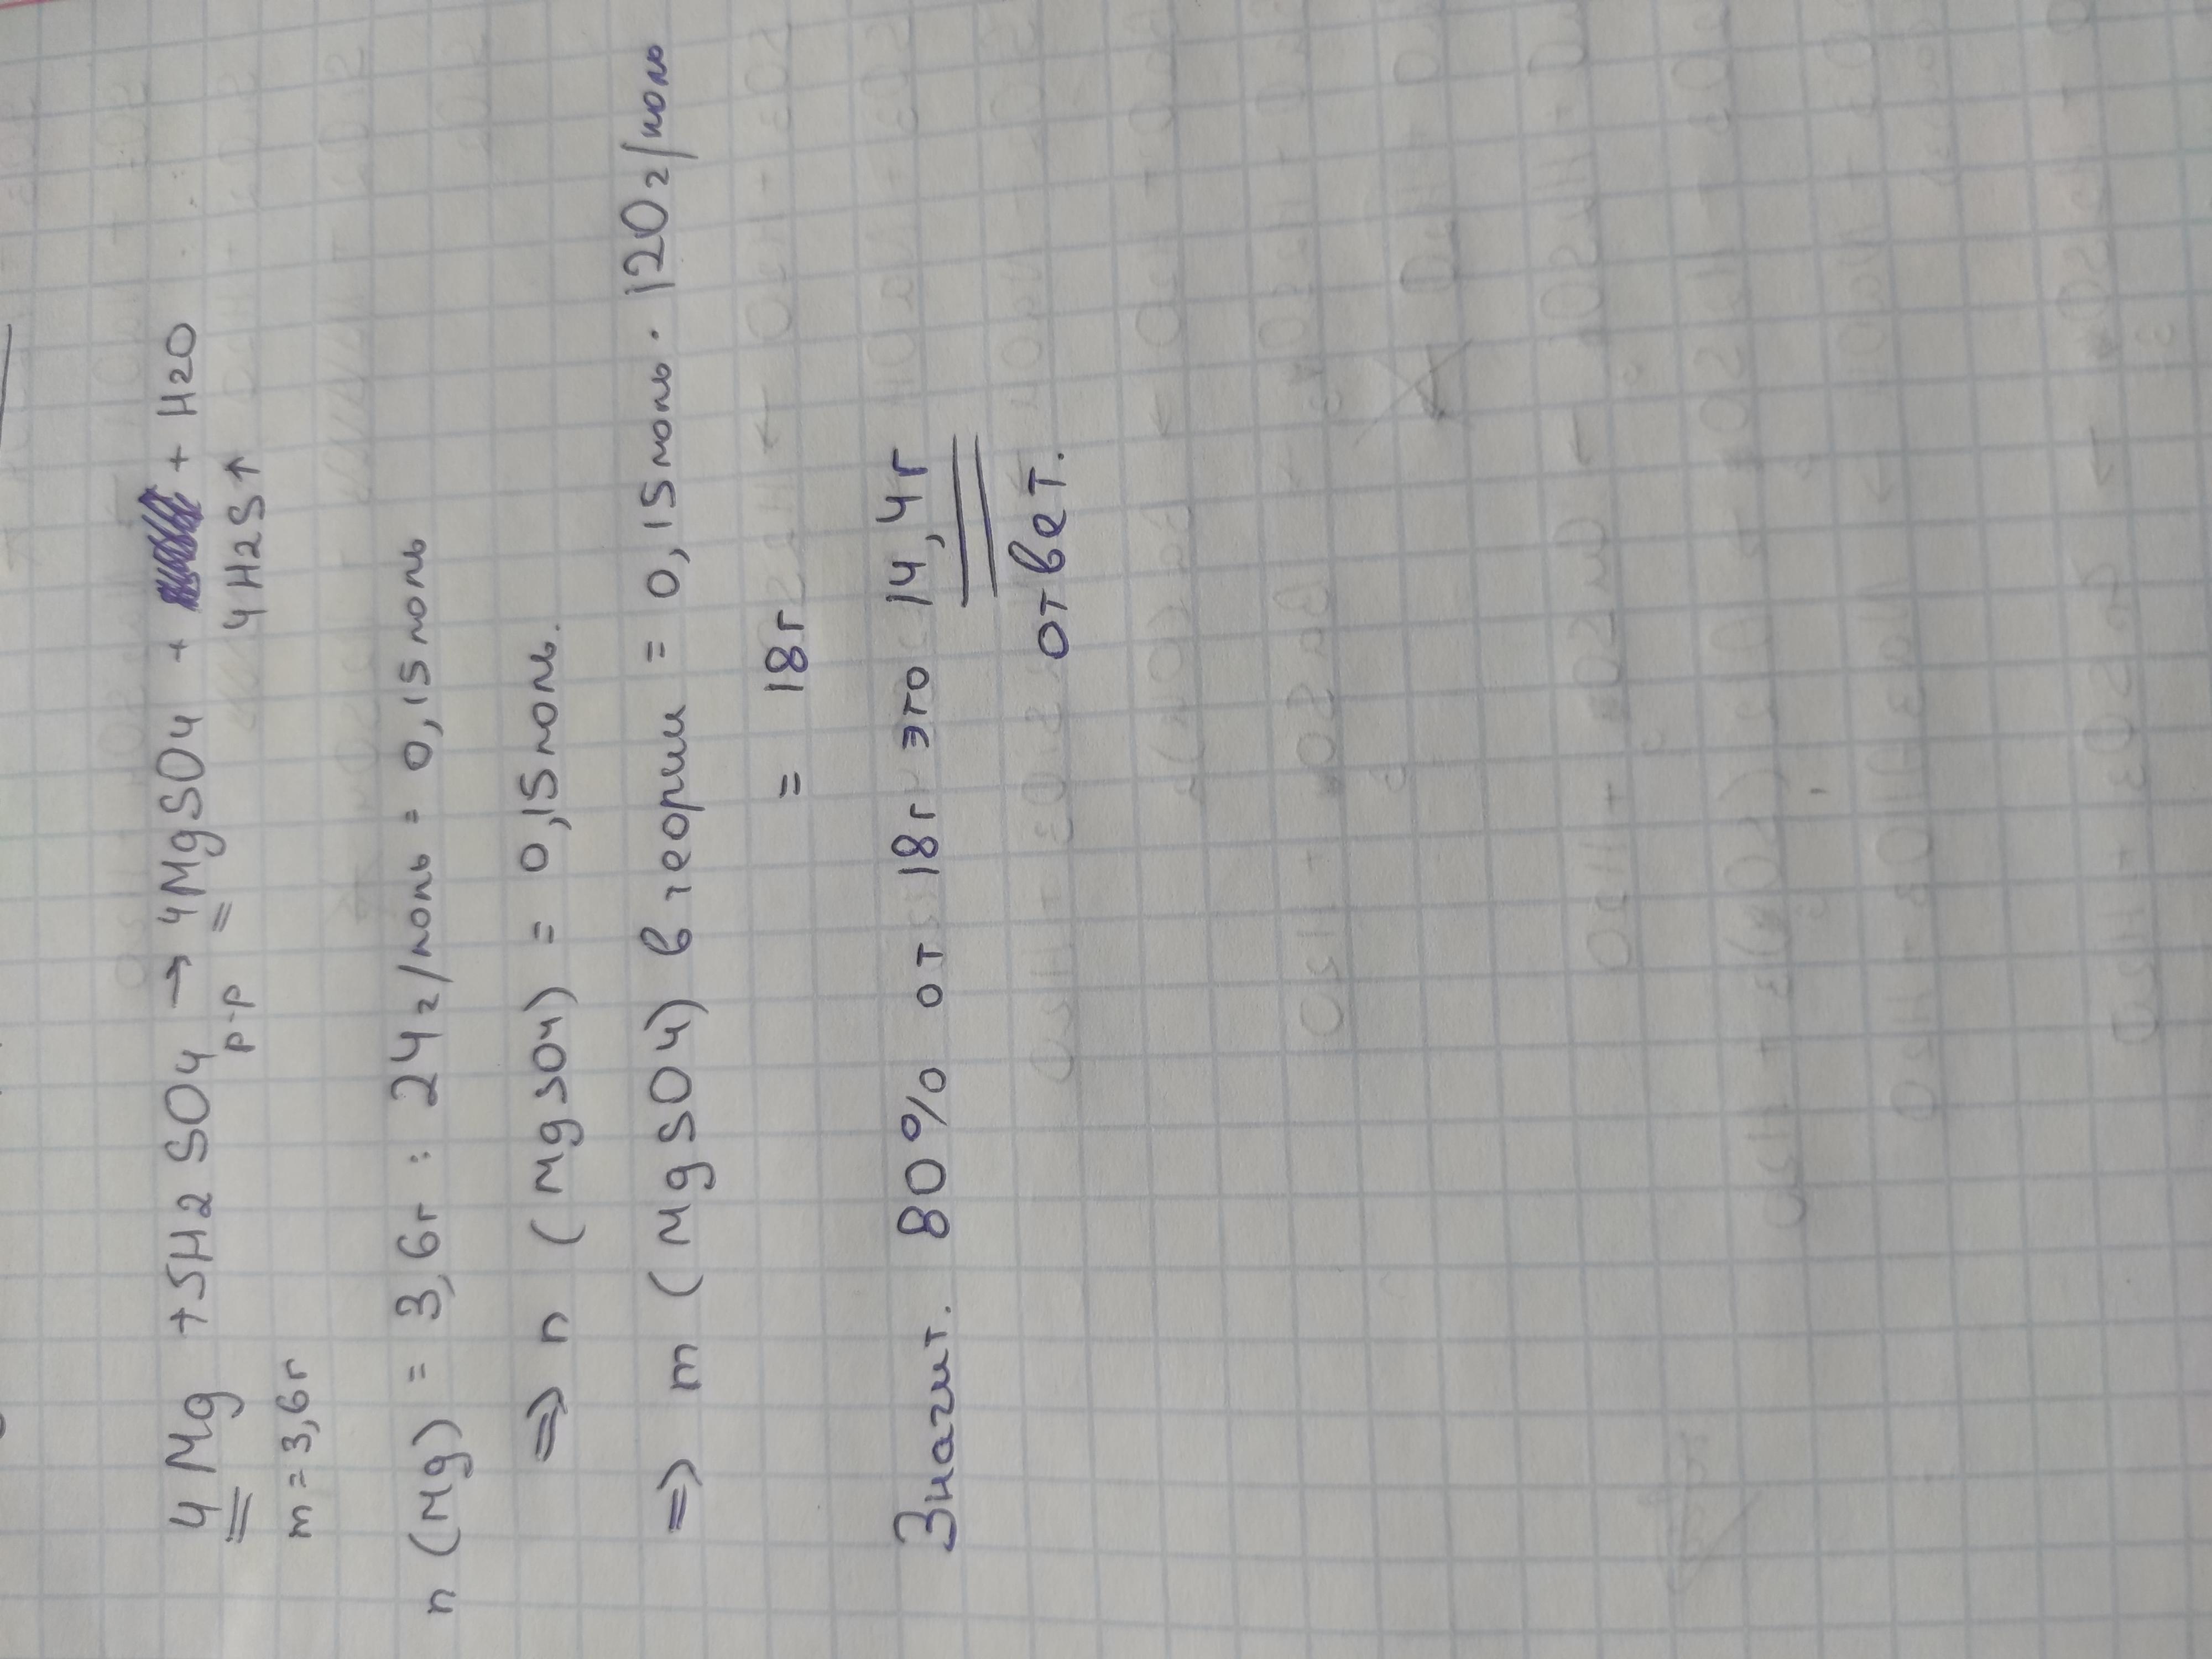 4Mg + 5H2SO4 → 4MgSO4 + + H2O
m = 3,6г р-р 4H2S↑
n (Mg) = 3,6г : 24г/моль = 0,15моль
=> n (MgSO4) = 0,15моль.
=> m (MgSO4) в теории = 0,15моль · 120г/моль
= 18г
Значит. 80% от 18г это 14,4г
ответ.